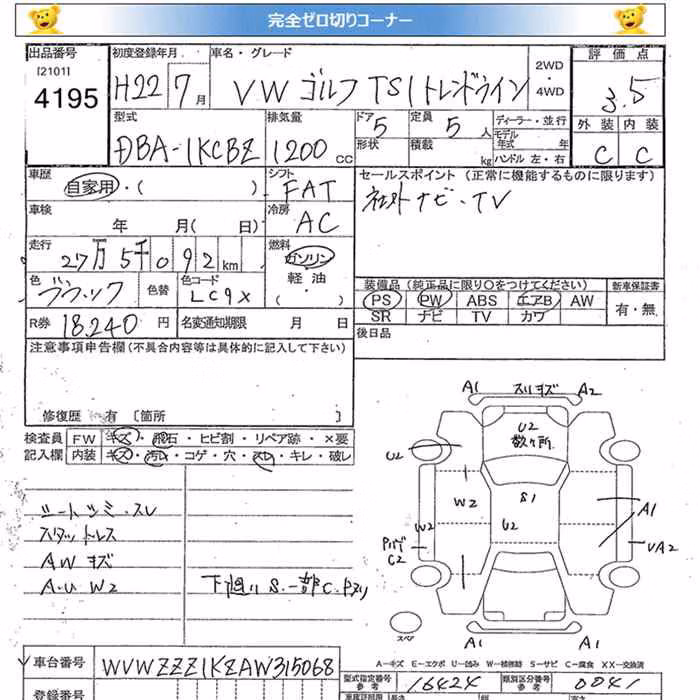 完全ゼロ切りコーナー
出品番号 [2101] 4195
初度登録年月 H22 7月
車名・グレード VW ゴルフ TSI トレンドライン
2WD・4WD
評価点 3.5
外装 C 内装 C
型式 DBA-1KCBZ
排気量 1200cc
ドア 5 形状
定員 5人 積載 kg
ディーラー・並行
モデル年式 年
ハンドル 左・右
車歴 自家用・( )
シフト FAT
セールスポイント (正常に機能するものに限ります)
ナビ・TV
車検 年 月( 日)
冷房 AC
走行 27万5千092km
燃料 ガソリン 軽油 ( )
色 ブラック 色替
色コード LC9X
装備品 (純正品に限り〇をつけてください)
PS PW ABS エアB AW
SR ナビ TV カワ
新車保証書 有・無
R券 18,240円
名変通知期限 月 日
後日品
注意事項申告欄(不具合内容等は具体的に記入して下さい)
修復歴 有 [箇所 ]
検査員 FW キズ・飛石・ヒビ割・リペア跡・×要
記入欄 内装 キズ・汚れ・コゲ・穴・スレ・キレ・破レ
シートシミ・スレ
スタットレス
AW キズ
A・U W2
下廻り S.一部C.
A1 スリキズ A2
U2 数ヶ所
U2
W2 S1 A1
W2 U2
C2 UA2
スペア
A1 A1
A－キズ E－エクボ U－凹み W－補修跡 S－サビ C－腐食 XX－交換済
車台番号 WVWZZZ1KZAW315068
型式指定番号 参考 16424
類別区分番号 参考 0041
登録番号